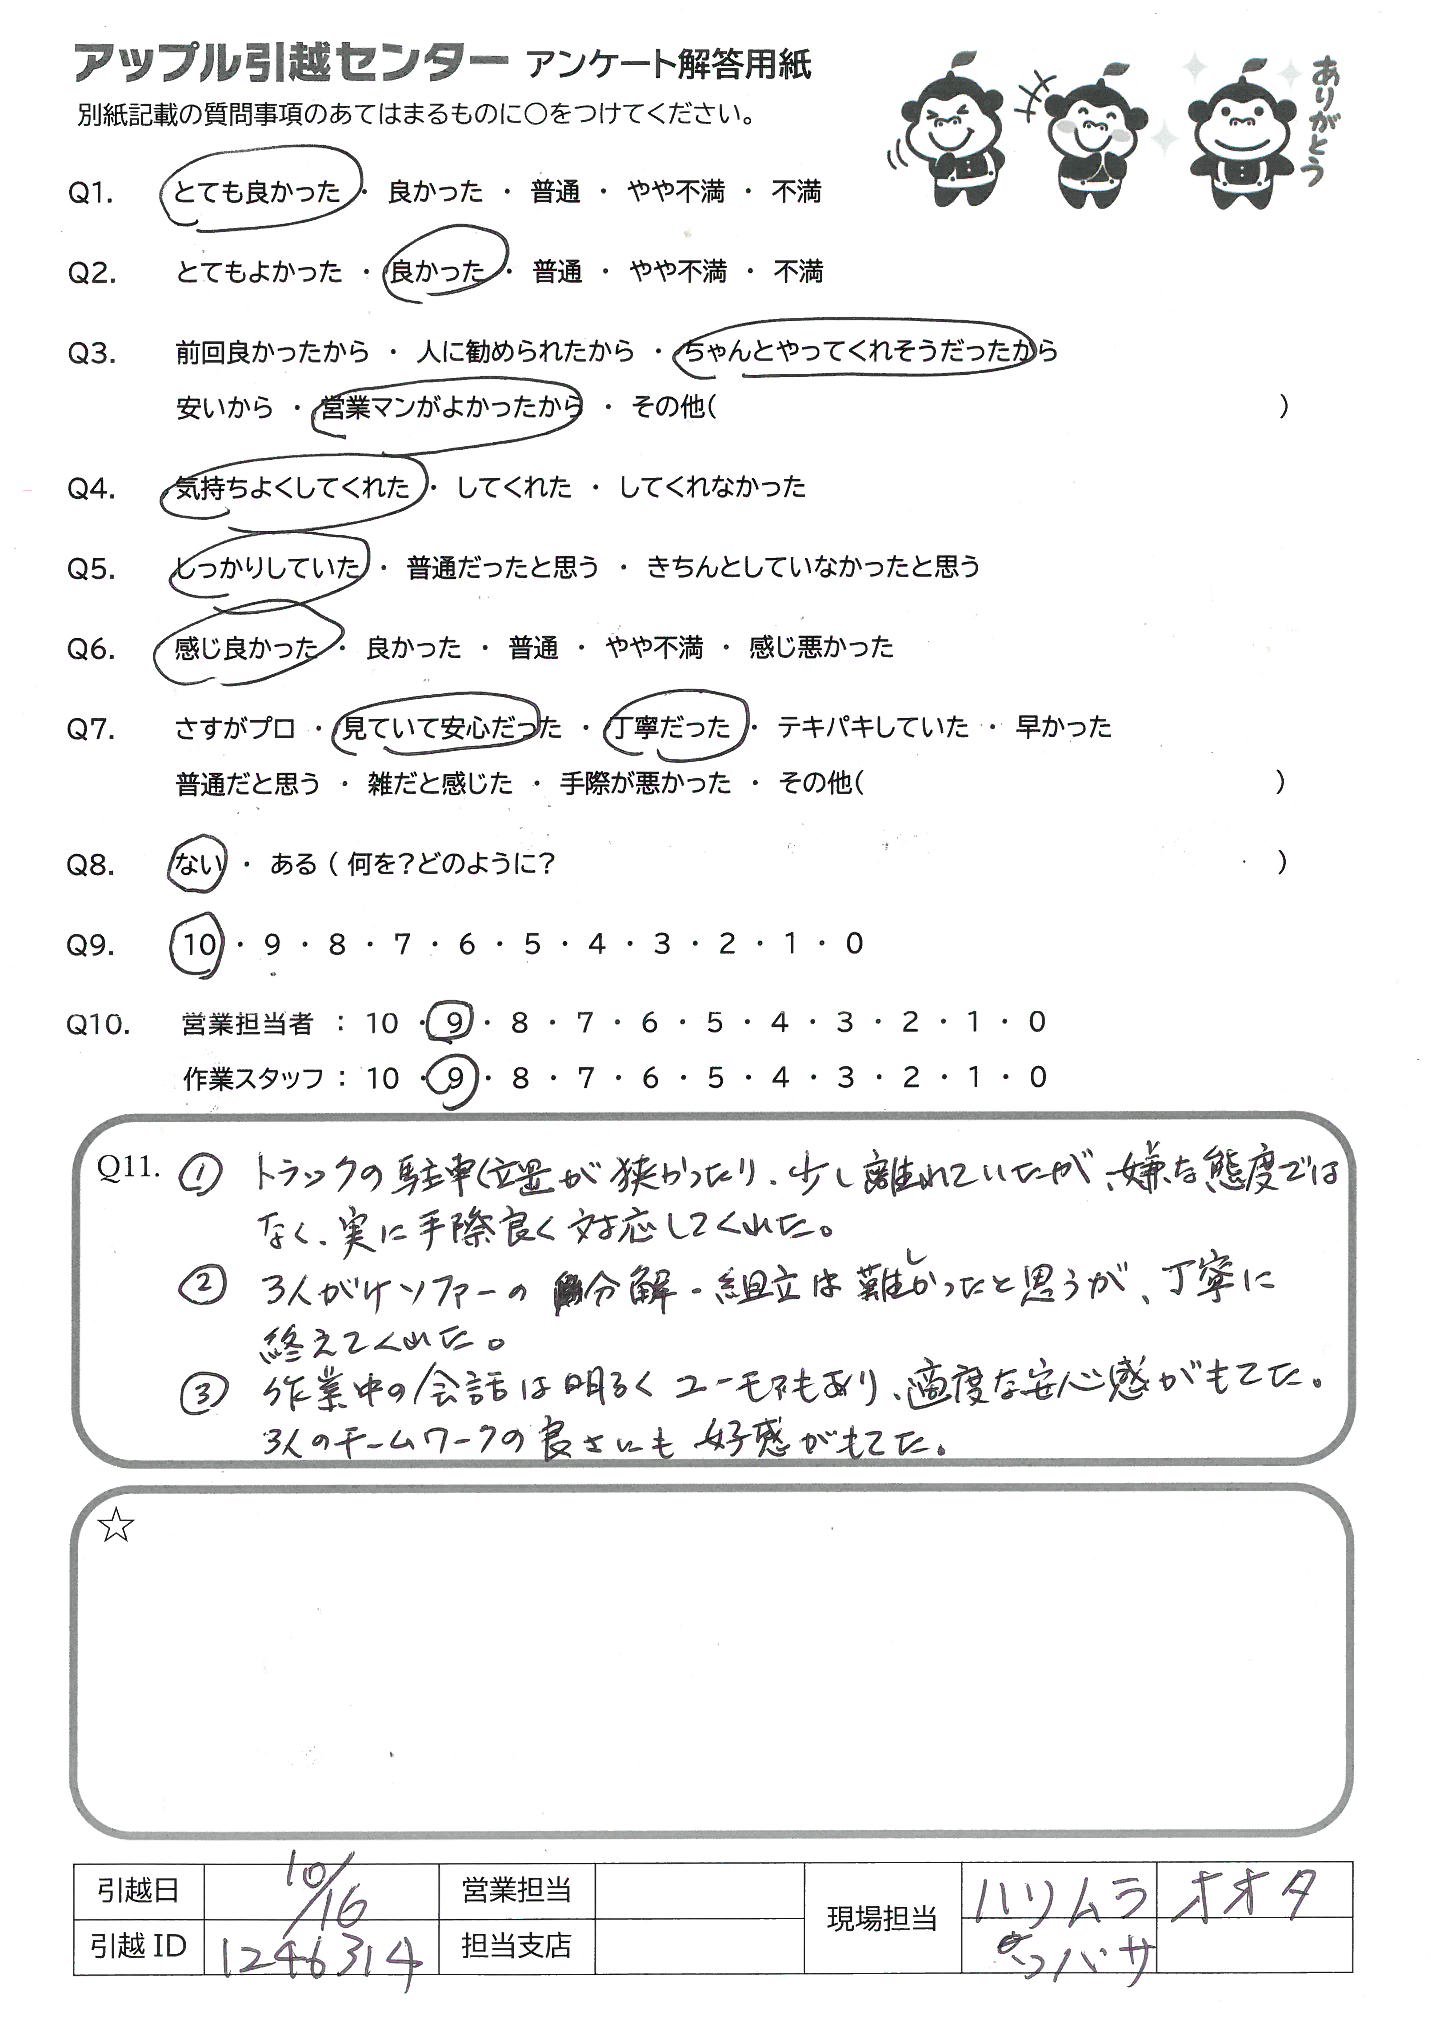 アップル引越センター アンケート解答用紙
別紙記載の質問事項のあてはまるものに○をつけてください。
ありがとう
Q1. とても良かった ・ 良かった ・ 普通 ・ やや不満 ・ 不満
Q2. とてもよかった ・ 良かった ・ 普通 ・ やや不満 ・ 不満
Q3. 前回良かったから ・ 人に勧められたから ・ ちゃんとやってくれそうだったから
安いから ・ 営業マンがよかったから ・ その他( )
Q4. 気持ちよくしてくれた ・ してくれた ・ してくれなかった
Q5. しっかりしていた ・ 普通だったと思う ・ きちんとしていなかったと思う
Q6. 感じ良かった ・ 良かった ・ 普通 ・ やや不満 ・ 感じ悪かった
Q7. さすがプロ ・ 見ていて安心だった ・ 丁寧だった ・ テキパキしていた ・ 早かった
普通だと思う ・ 雑だと感じた ・ 手際が悪かった ・ その他( )
Q8. ない ・ ある ( 何を?どのように? )
Q9. 10 ・ 9 ・ 8 ・ 7 ・ 6 ・ 5 ・ 4 ・ 3 ・ 2 ・ 1 ・ 0
Q10. 営業担当者 : 10 ・ 9 ・ 8 ・ 7 ・ 6 ・ 5 ・ 4 ・ 3 ・ 2 ・ 1 ・ 0
作業スタッフ : 10 ・ 9 ・ 8 ・ 7 ・ 6 ・ 5 ・ 4 ・ 3 ・ 2 ・ 1 ・ 0
Q11. ① トラックの駐車位置が狭かったり、少し離れていたが、嫌な態度では
なく、実に手際良く対応してくれた。
② 3人がけソファーの分解・組立は難しかったと思うが、丁寧に
終えてくれた。
③ 作業中の会話は明るくユーモアもあり、適度な安心感がもてた。
3人のチームワークの良さにも好感がもてた。
☆
引越日 10/16 営業担当 現場担当 ハリムラ オオタ
引越ID 1246314 担当支店 ツバサ